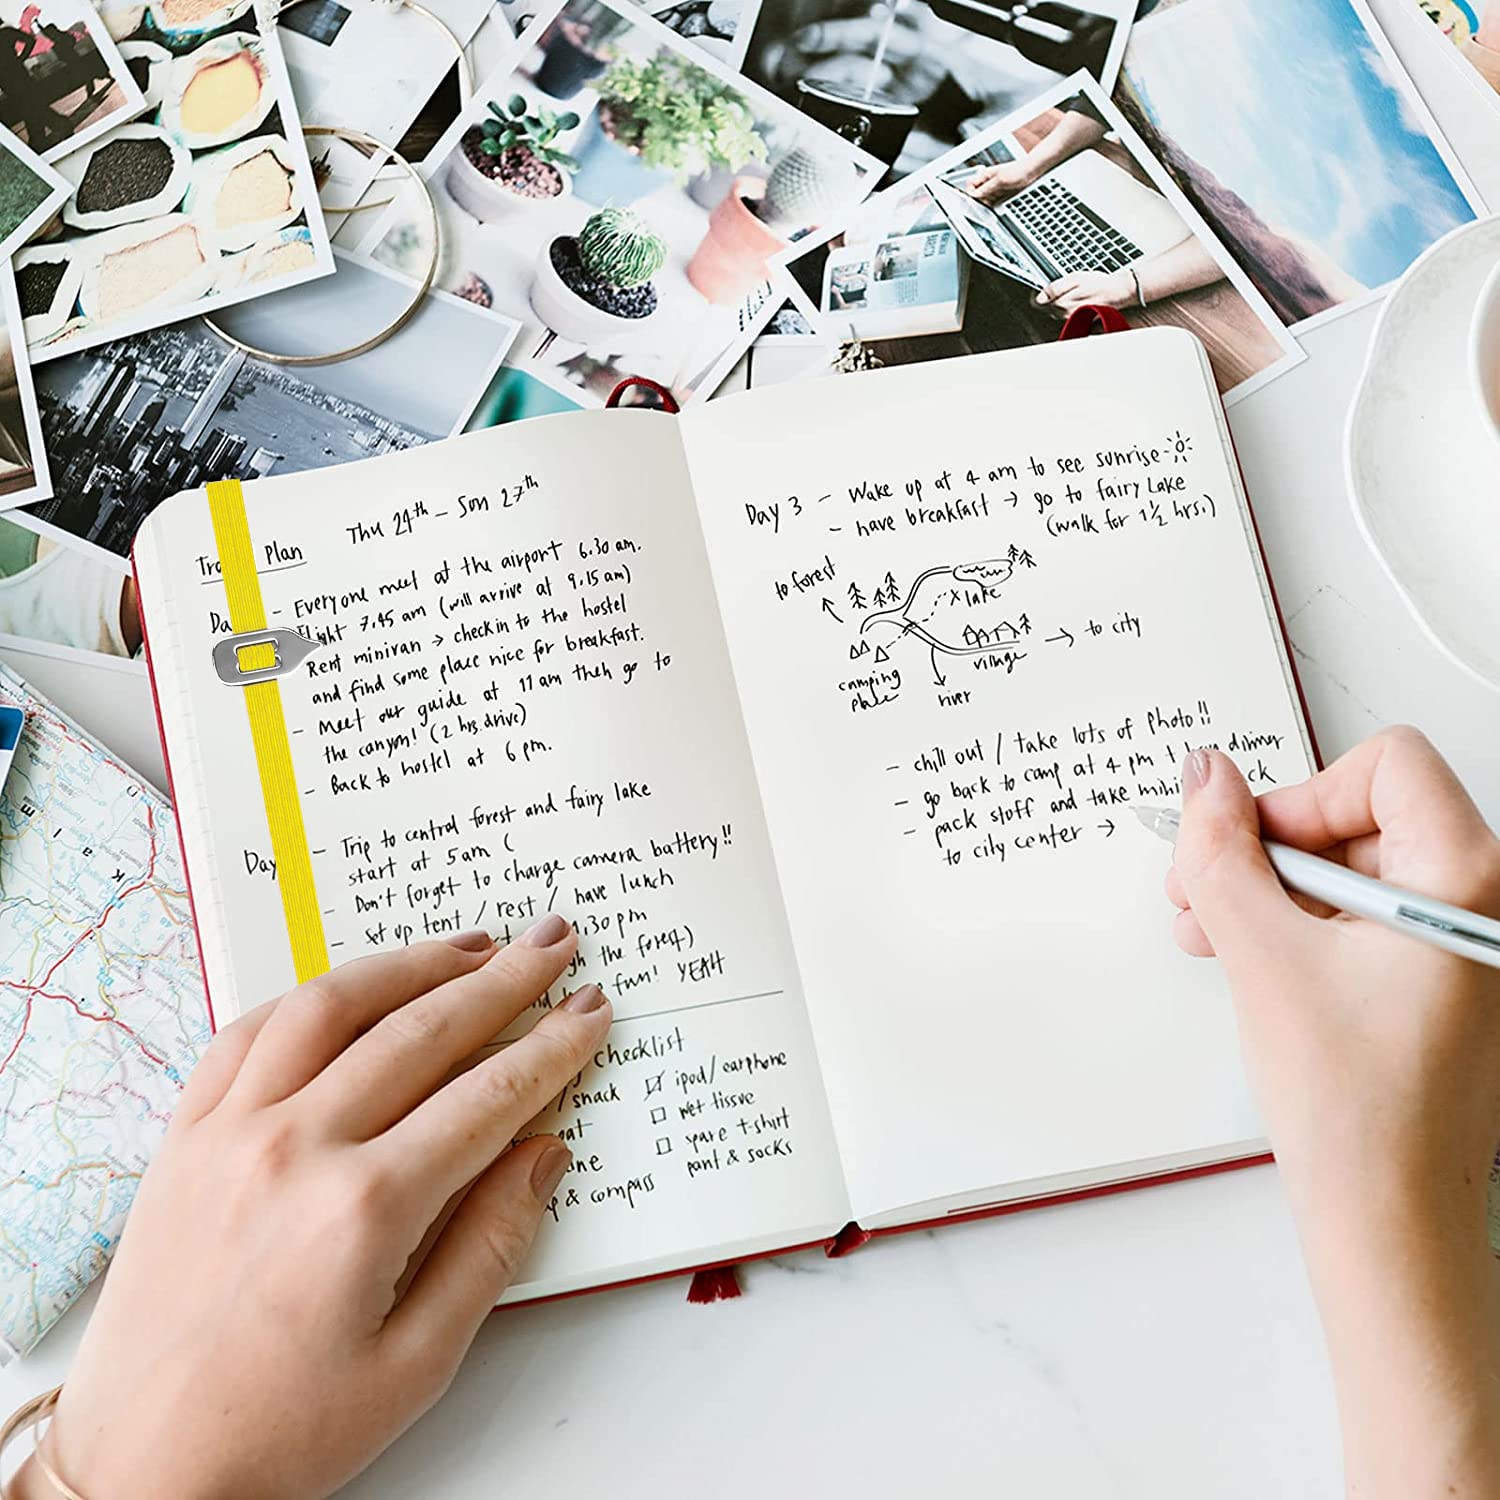 Thu 24th - Sun 27th
Plan
- Everyone meet at the airport 6.30 am.
Flight 7.45 am (will arrive at 9.15 am)
Rent minivan → check in to the hostel
and find some place nice for breakfast.
- Meet our guide at 11 am then go to
the canyon! (2 hrs. drive)
- Back to hostel at 6 pm.
Day - Trip to central forest and fairy lake
start at 5 am (
- Don't forget to charge camera battery!!
- set up tent / rest / have lunch
1.30 pm
the forest)
fun! YEAH
checklist
/snack
ipod/earphone
wet tissue
spare t-shirt
pant & socks
& compass
Day 3 - Wake up at 4 am to see sunrise
- have breakfast → go to fairy Lake
(walk for 1½ hrs.)
to forest
x lake
to city
village
camping
place
river
- chill out / take lots of photo!!
- go back to camp at 4 pm + dinner
- pack stuff and take
to city center →